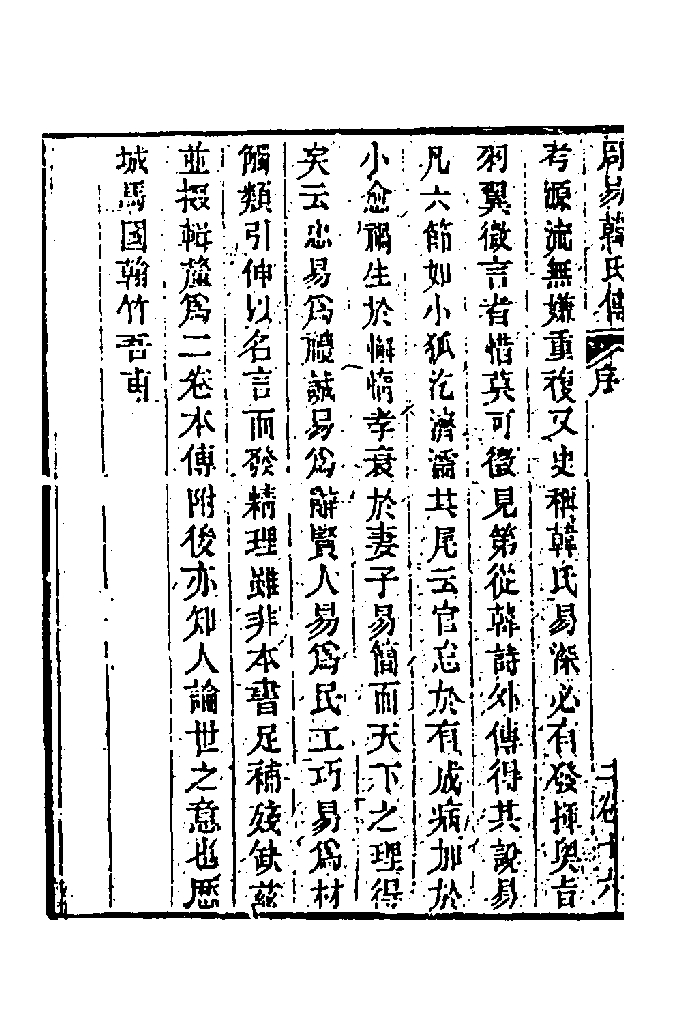 周易韓氏傳 序 二 卷十六
考源流無嫌重複又史稱韓氏易深必有發揮奧旨
羽翼微言者惜莫可徵見第從韓詩外傳得其說易
凡六節如小狐汔濟濡其尾云官怠於有成病加於
小愈禍生於懈惰孝衰於妻子易簡而天下之理得
矣云忠易為禮誠易為辭賢人易為民工巧易為材
觸類引伸以名言而發精理雖非本書足補殘缺茲
並掇輯釐為二卷本傳附後亦知人論世之意也歷
城馬國翰竹吾甫